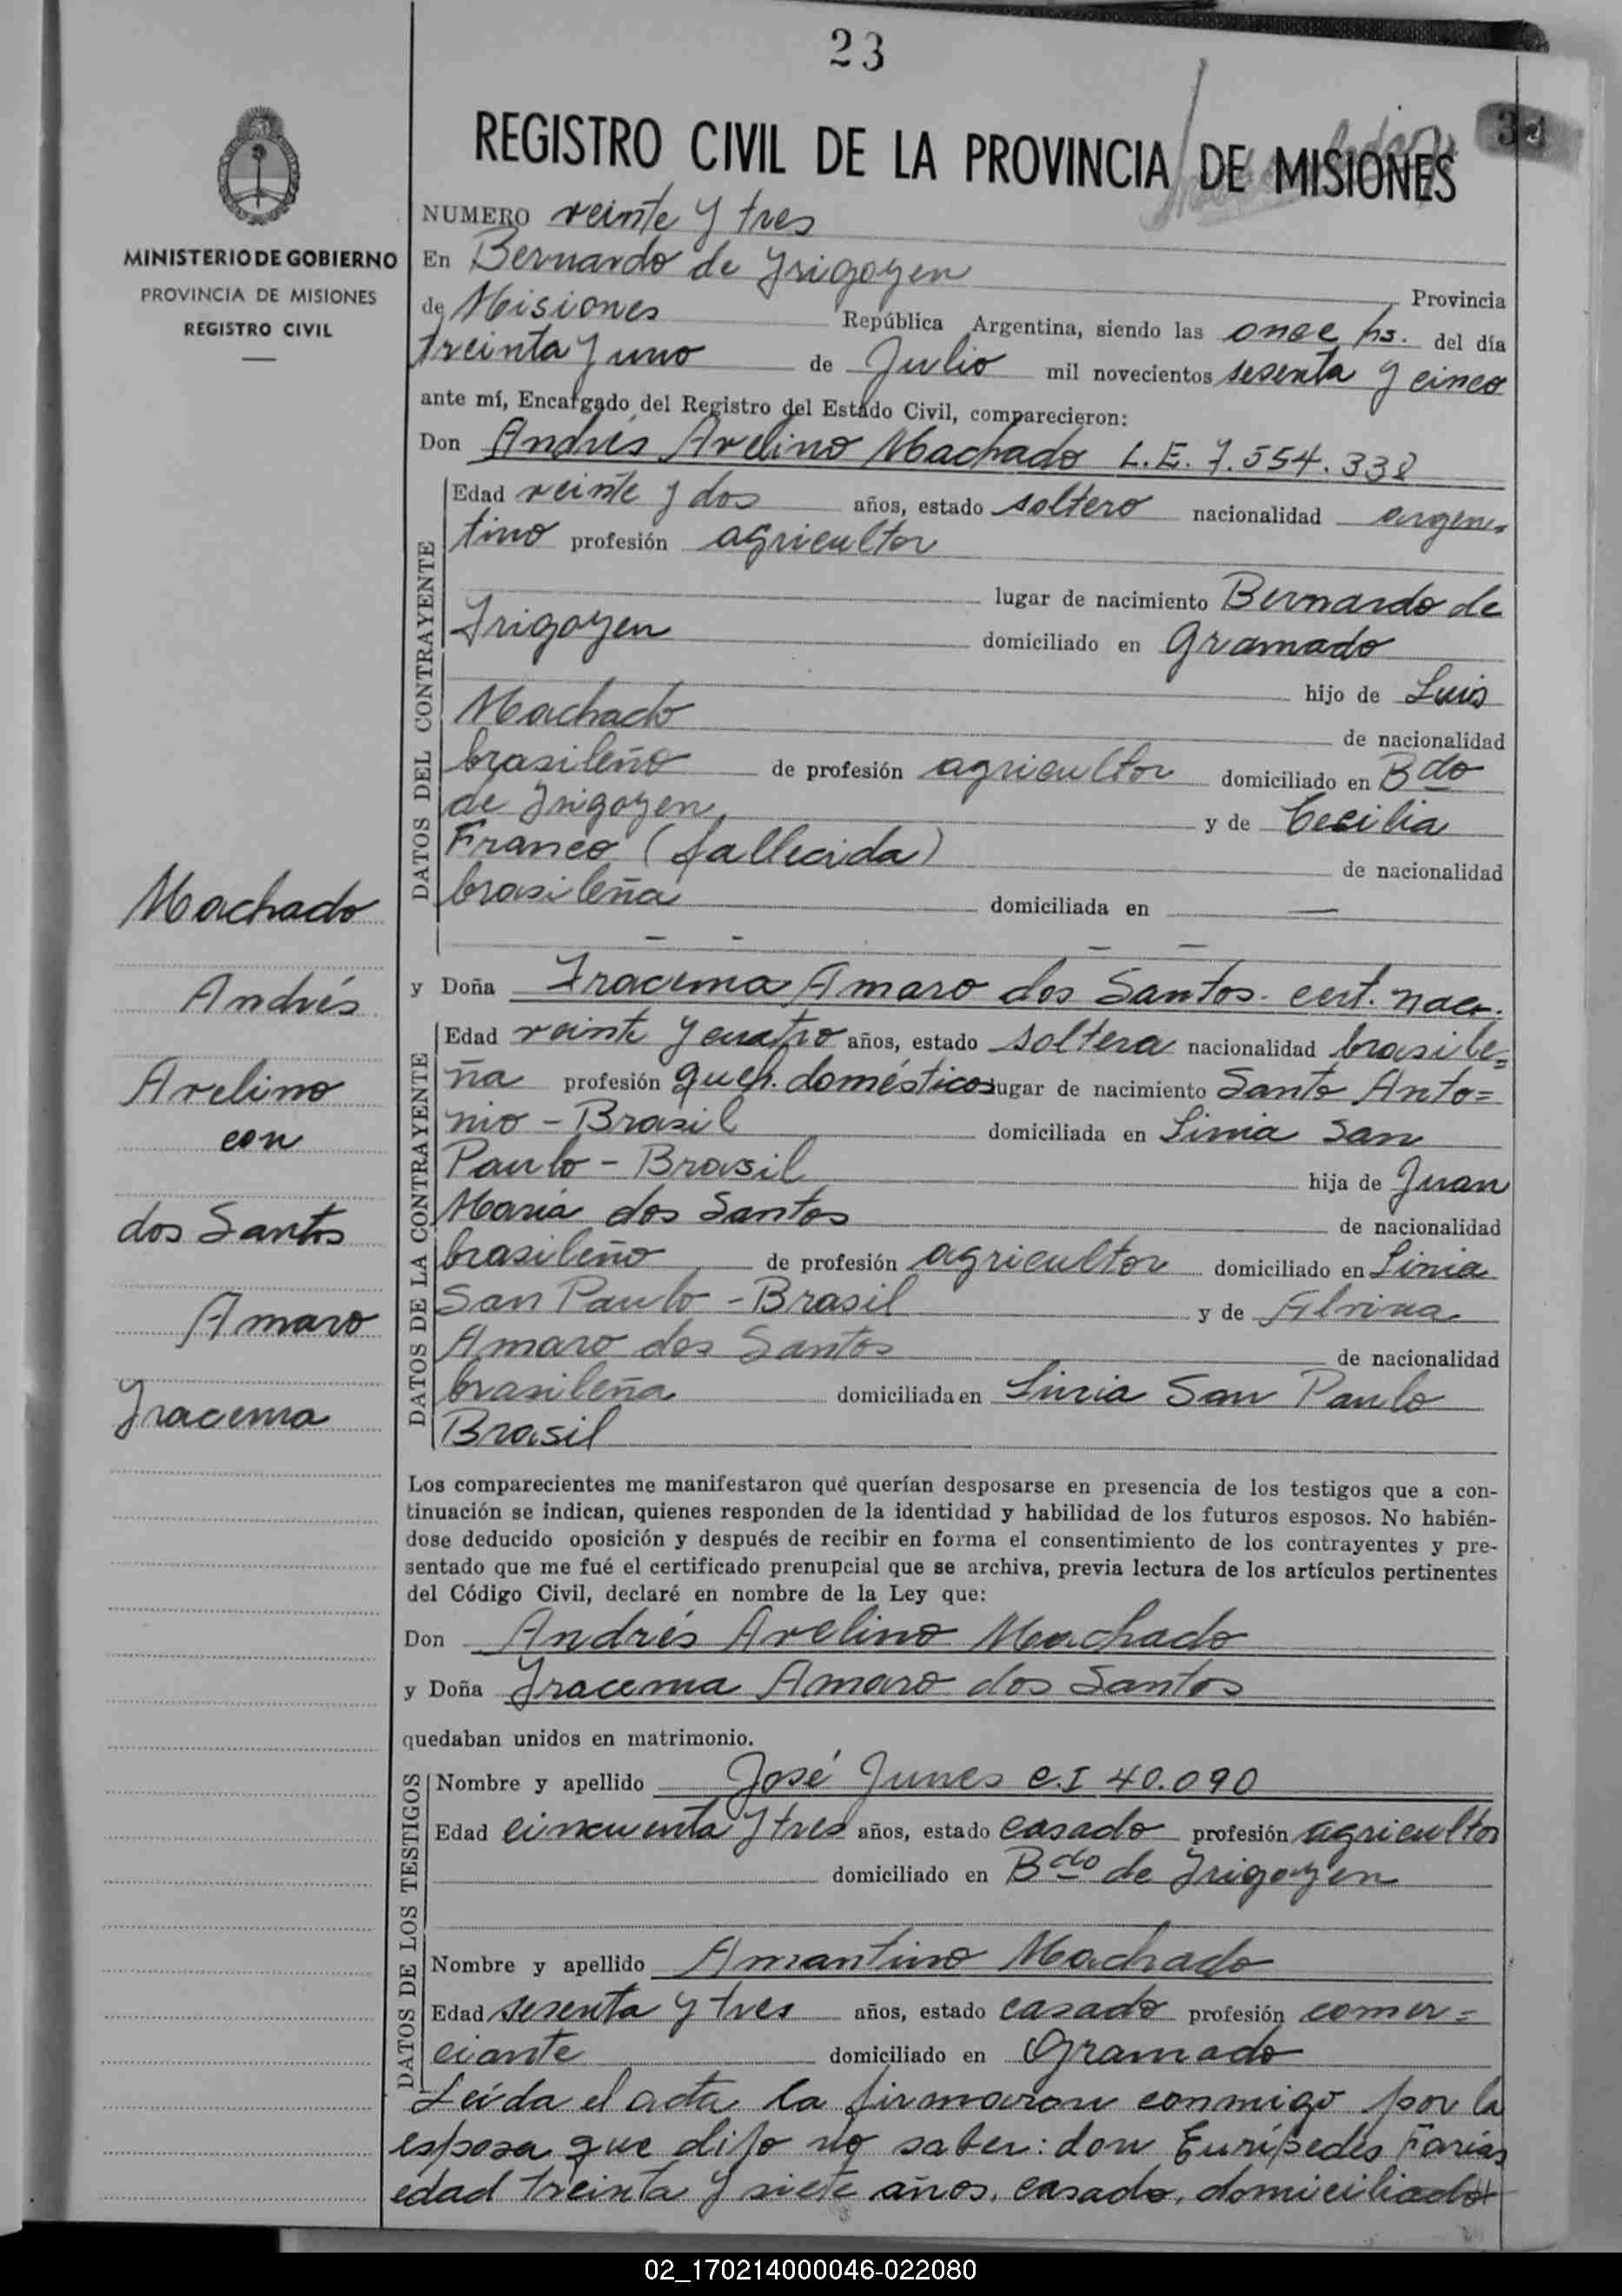 23
REGISTRO CIVIL DE LA PROVINCIA DE MISIONES
MINISTERIO DE GOBIERNO
PROVINCIA DE MISIONES
REGISTRO CIVIL
NUMERO veinte y tres
En Bernardo de Yrigoyen Provincia
de Misiones República Argentina, siendo las once hs. del día
treinta y uno de Julio mil novecientos sesenta y cinco
ante mí, Encargado del Registro del Estado Civil, comparecieron:
Don Andrés Avelino Machado L.E. 7.554.338
Edad veinte y dos años, estado soltero nacionalidad argen-
tino profesión agricultor
lugar de nacimiento Bernardo de
Irigoyen domiciliado en Gramado
hijo de Luis
Machado de nacionalidad
brasileño de profesión agricultor domiciliado en Bdo
de Irigoyen y de Cecilia
Franco (fallecida) de nacionalidad
brasileña domiciliada en —
DATOS DEL CONTRAYENTE
Machado
Andrés
Avelino
con
dos Santos
Amaro
Iracema
y Doña Iracema Amaro dos Santos - cert. nac.
Edad veinte y cuatro años, estado soltera nacionalidad brasile=
ña profesión queh. domésticos lugar de nacimiento Santo Anto=
nio - Brasil domiciliada en Linia San
Paulo - Brasil hija de Juan
María dos Santos de nacionalidad
brasileño de profesión agricultor domiciliado en Linia
San Paulo - Brasil y de
Amaro dos Santos de nacionalidad
brasileña domiciliada en Linia San Paulo
Brasil
DATOS DE LA CONTRAYENTE
Los comparecientes me manifestaron qué querían desposarse en presencia de los testigos que a con-
tinuación se indican, quienes responden de la identidad y habilidad de los futuros esposos. No habién-
dose deducido oposición y después de recibir en forma el consentimiento de los contrayentes y pre-
sentado que me fué el certificado prenupcial que se archiva, previa lectura de los artículos pertinentes
del Código Civil, declaré en nombre de la Ley que:
Don Andrés Avelino Machado
y Doña Iracema Amaro dos Santos
quedaban unidos en matrimonio.
Nombre y apellido José Junes C.I 40.090
Edad cincuenta y tres años, estado casado profesión agricultor
domiciliado en Bdo de Irigoyen
Nombre y apellido Amantino Machado
Edad sesenta y tres años, estado casado profesión comer=
ciante domiciliado en Gramado
DATOS DE LOS TESTIGOS
Leída el acta la firmaron conmigo por la
esposa que dijo no saber: don Eurípedes Farías
edad treinta y siete años, casado, domiciliado
02_170214000046-022080